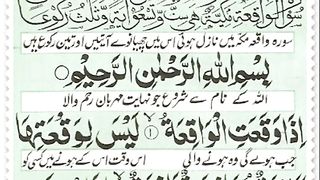 سورة الواقعة مكية هى ست و تسعون آية و ثلث ركوعا
سورہ واقعہ مکہ میں نازل ہوئی اس میں چھیانوے آیتیں اور تین رکوع ہیں
بِسْمِ اللّٰهِ الرَّحْمٰنِ الرَّحِيْمِ
اللہ کے نام سے شروع جو نہایت مہربان رحم والا
اِذَا وَقَعَتِ الْوَاقِعَةُ ۝۱ لَيْسَ لِوَقْعَتِهَا
جب ہولے گی وہ ہونے والی اس وقت اس کے ہونے میں کسی کو